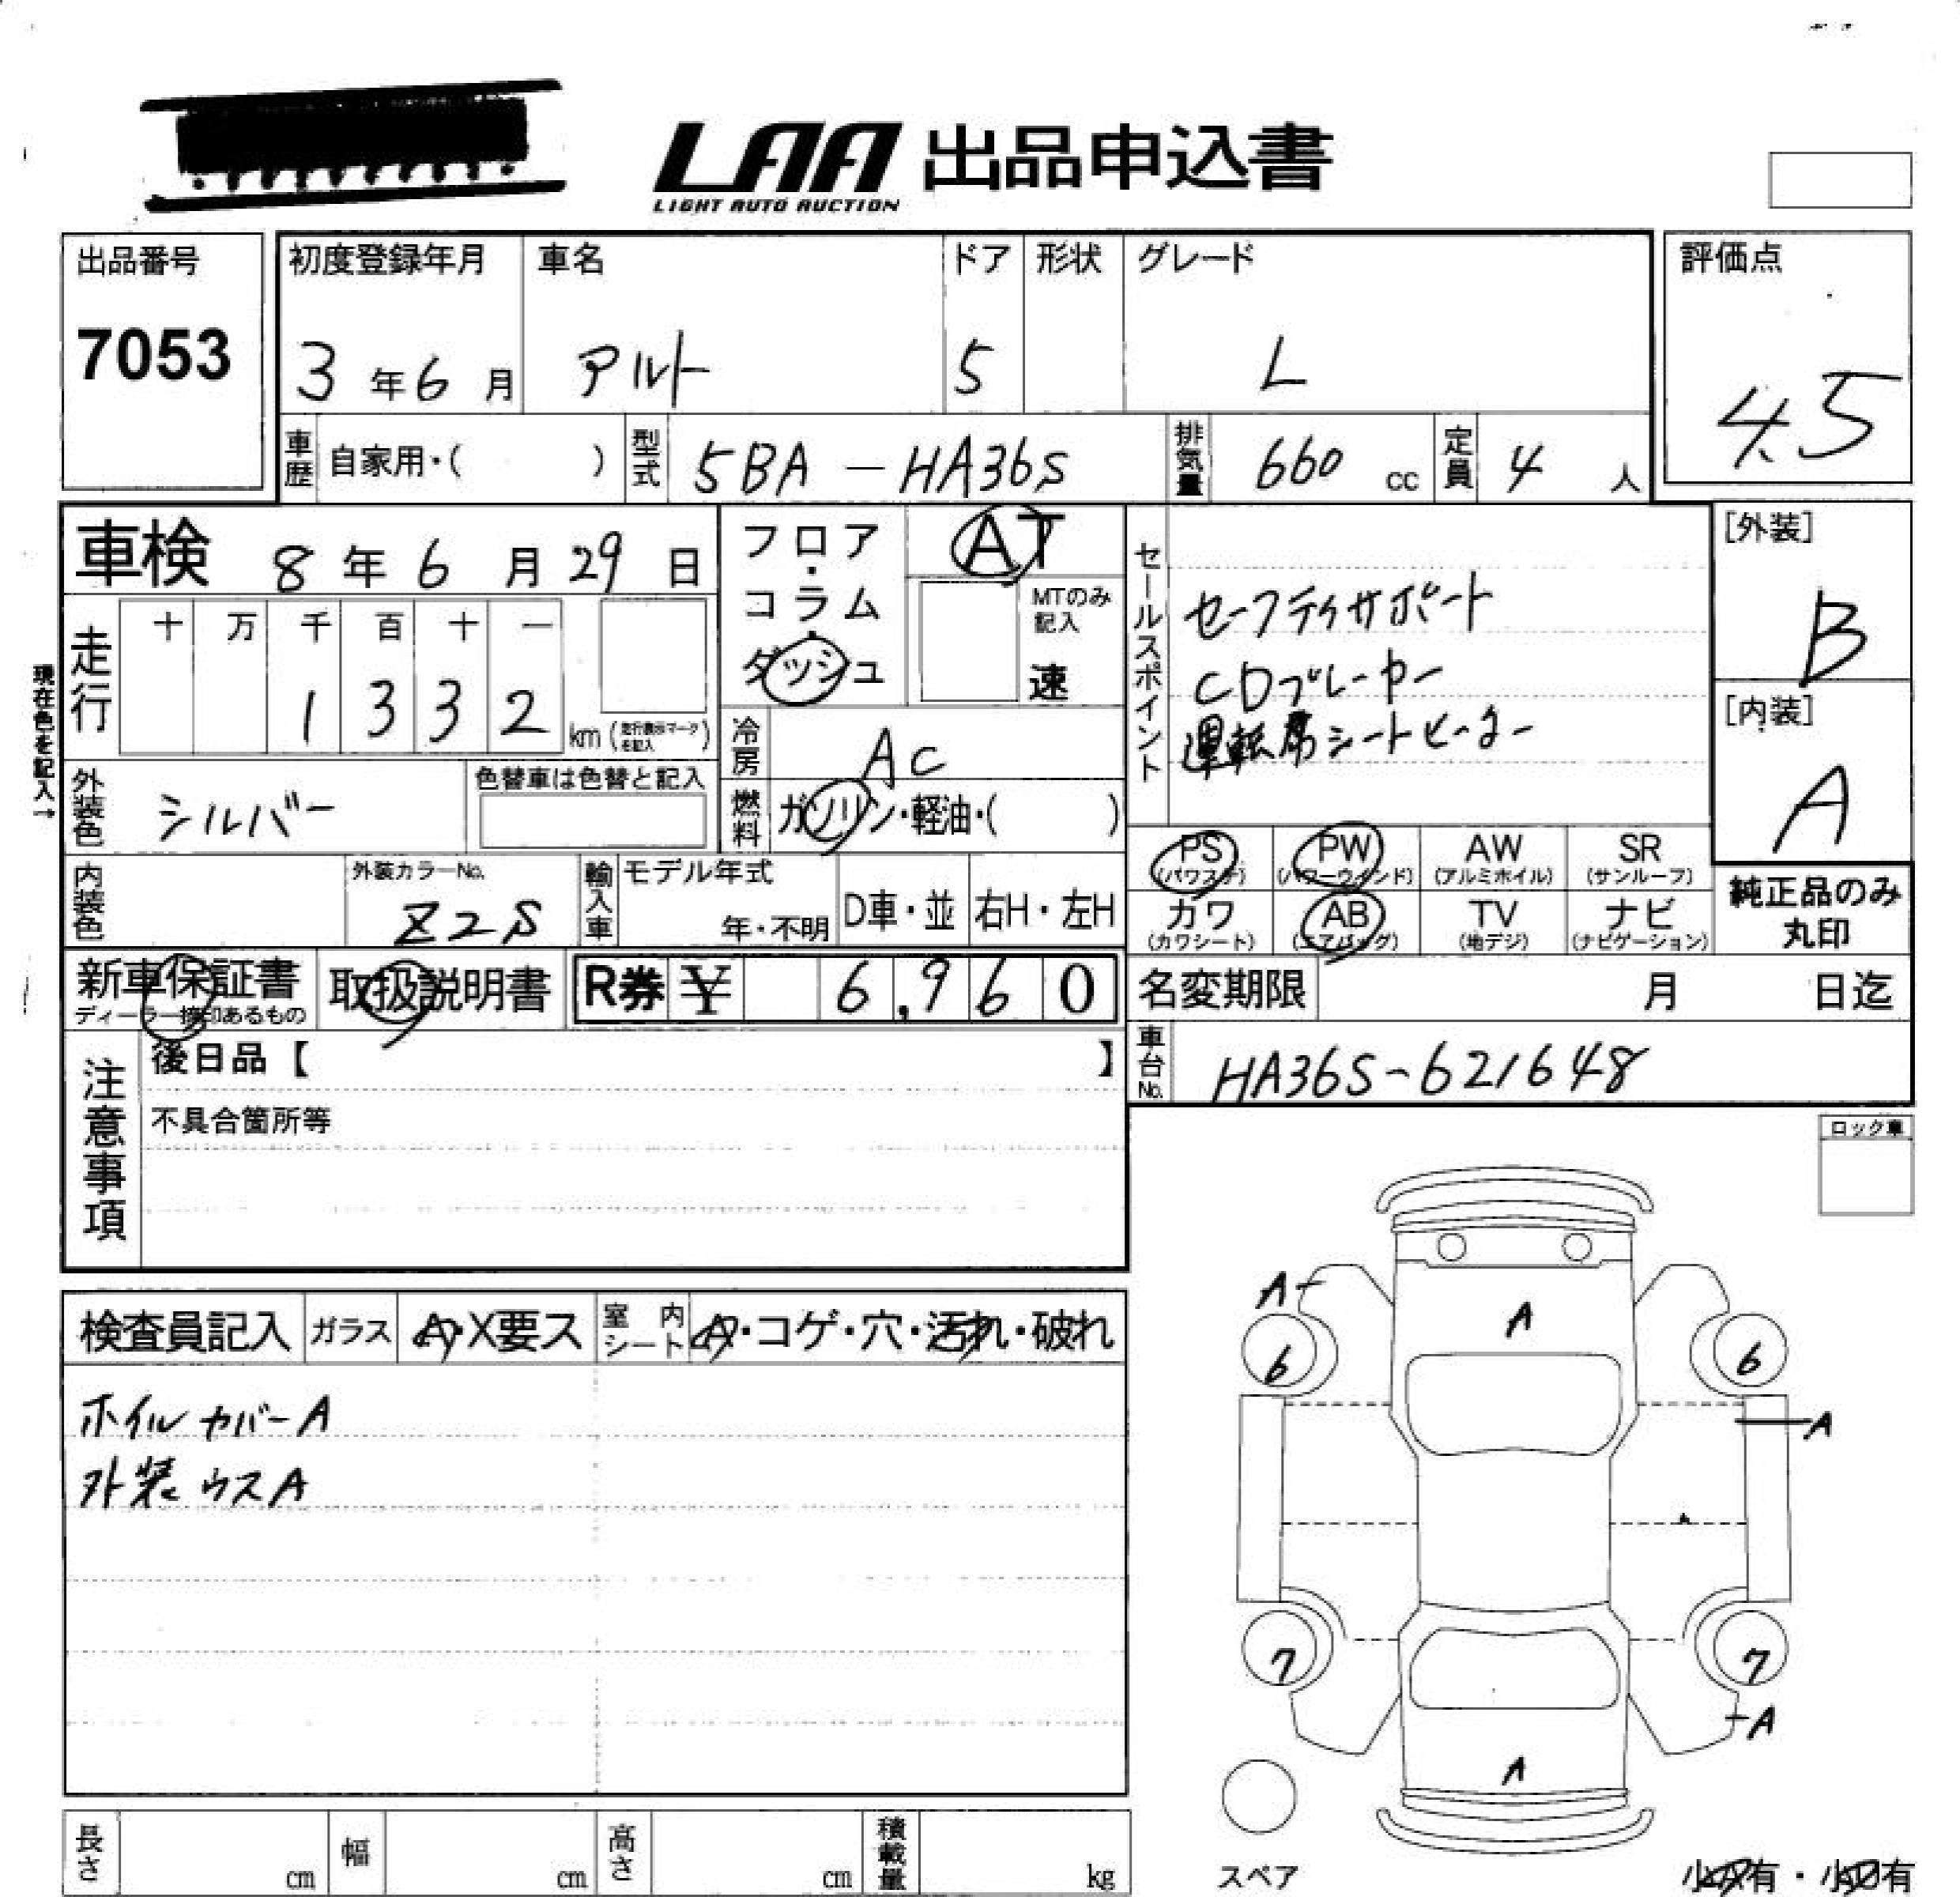 LAA 出品申込書
LIGHT AUTO AUCTION
出品番号
7053
初度登録年月
3年6月
車名
アルト
ドア
5
形状
グレード
L
評価点
4.5
車歴
自家用・( )
型式
5BA-HA36S
排気量
660 cc
定員
4人
車検 8年6月29日
フロア・コラム・ダッシュ
AT
MTのみ記入
速
セールスポイント
セーフティサポート
CDプレーヤー
運転席シートヒーター
[外装]
B
[内装]
A
現在色を記入→
走行
十 万 千 百 十 一
1 3 3 2
km (走行表示マークを記入)
冷房
AC
燃料
ガソリン・軽油・( )
外装色
シルバー
色替車は色替と記入
内装色
外装カラーNo.
Z2S
輸入車
モデル年式
年・不明
D車・並
右H・左H
PS (パワステ)
PW (パワーウインド)
AW (アルミホイル)
SR (サンルーフ)
カワ (カワシート)
AB (エアバッグ)
TV (地デジ)
ナビ (ナビゲーション)
純正品のみ丸印
新車保証書
ディーラー捺印あるもの
取扱説明書
R券 ¥ 6,960
名変期限 月 日迄
車台No.
HA36S-621648
注意事項
後日品【 】
不具合箇所等
ロック車
検査員記入
ガラス
A・X要ス
室内シート
A・コゲ・穴・汚れ・破れ
ホイルカバーA
外装ウスA
A
A
6
6
A
7
7
A
A
スペア
長さ cm
幅 cm
高さ cm
積載量 kg